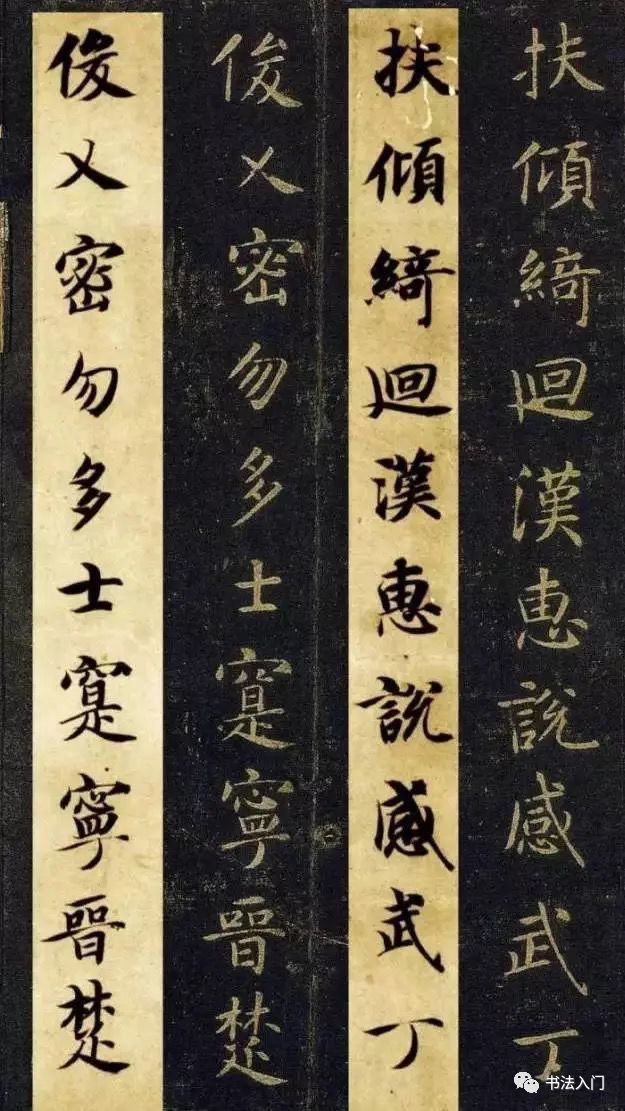 扶傾綺迴漢惠說感武丁
扶傾綺迴漢惠說感武丁
俊乂密勿多士寔寧晉楚
俊乂密勿多士寔寧晉楚
书法入门